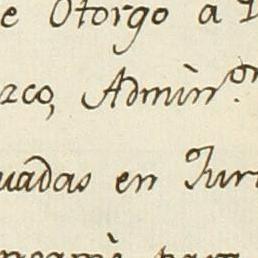 e Otorgo a
zco, Admin.or
uadas en Juri
para